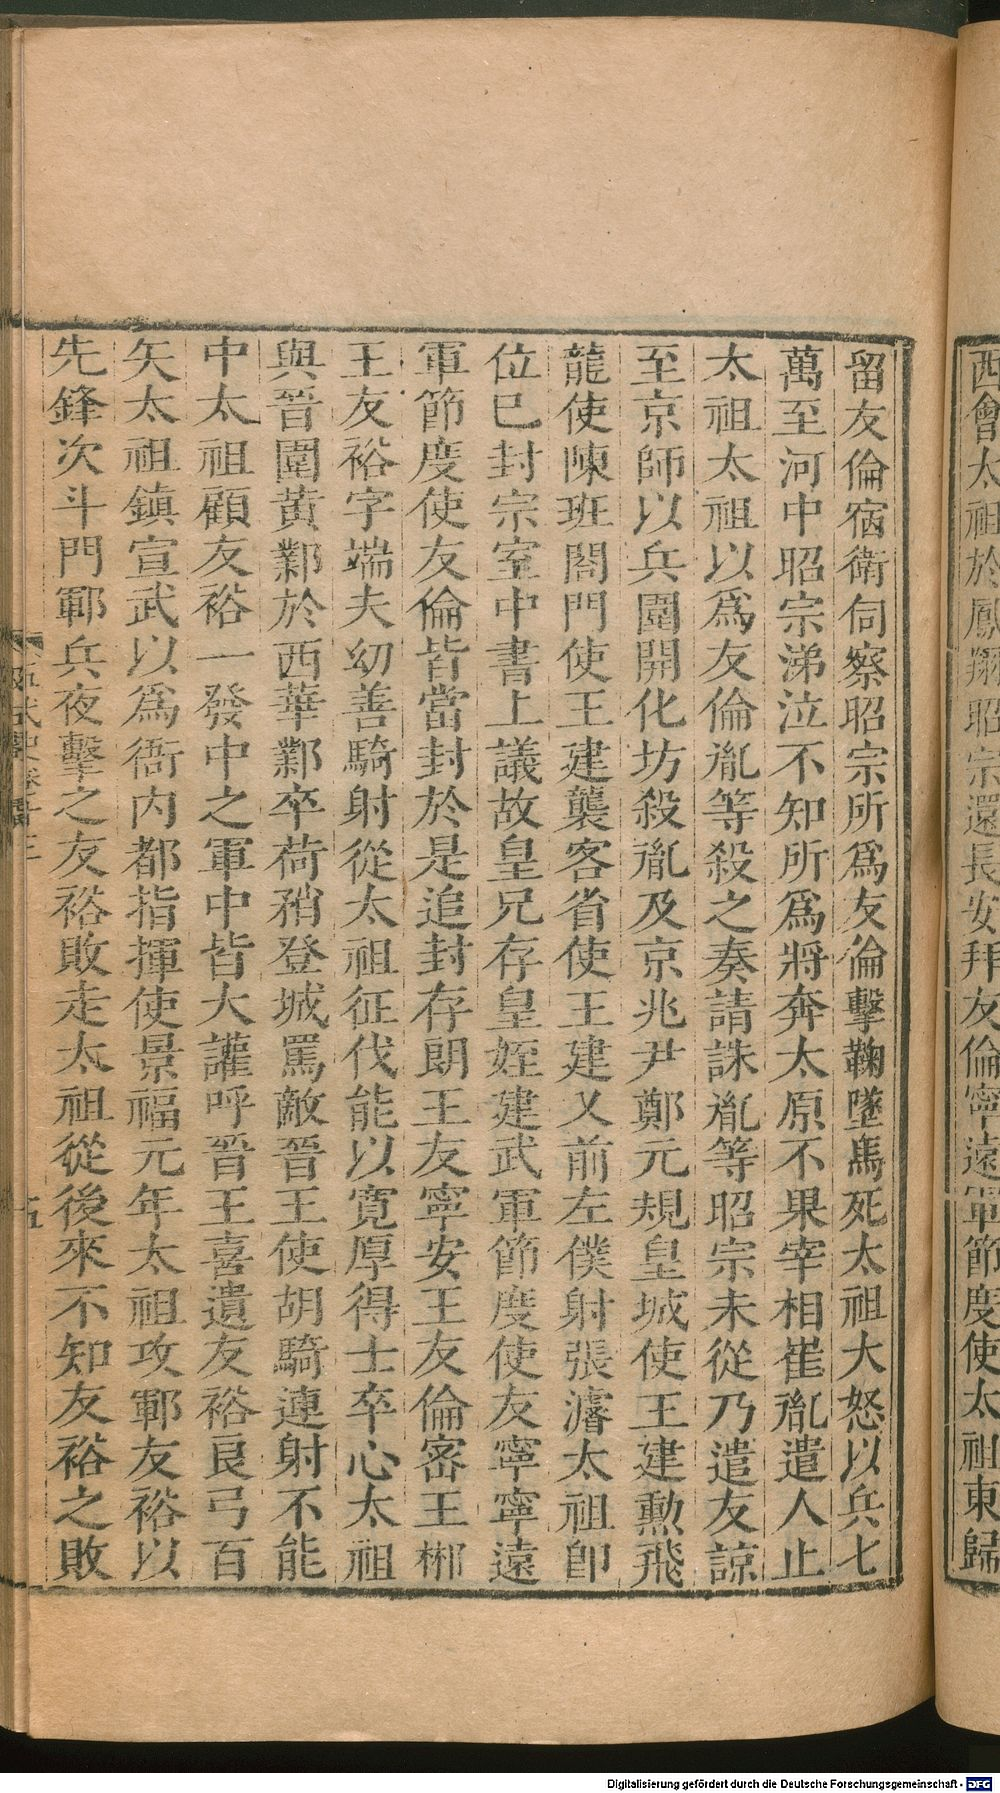 西會太祖於鳳翔昭宗還長安拜友倫寧遠軍節度使太祖東歸
留友倫宿衛伺察昭宗所爲友倫擊鞠墜馬死太祖大怒以兵七
萬至河中昭宗涕泣不知所爲將奔太原不果宰相崔胤遣人止
太祖太祖以爲友倫胤等殺之奏請誅胤等昭宗未從乃遣友諒
至京師以兵圍開化坊殺胤及京兆尹鄭元規皇城使王建勲飛
龍使陳班閤門使王建襲客省使王建乂前左僕射張濬太祖卽
位已封宗室中書上議故皇兄存皇姪建武軍節度使友寧寧遠
軍節度使友倫皆當封於是追封存朗王友寧安王友倫密王郴
王友裕字端夫幼善騎射從太祖征伐能以寬厚得士卒心太祖
與晉圍黃鄴於西華鄴卒荷矟登城罵敵晉王使胡騎連射不能
中太祖顧友裕一發中之軍中皆大讙呼晉王喜遺友裕良弓百
矢太祖鎮宣武以爲衙內都指揮使景福元年太祖攻鄆友裕以
先鋒次斗門鄆兵夜擊之友裕敗走太祖從後來不知友裕之敗
五代史卷十三
十五
Digitalisierung gefördert durch die Deutsche Forschungsgemeinschaft - DFG